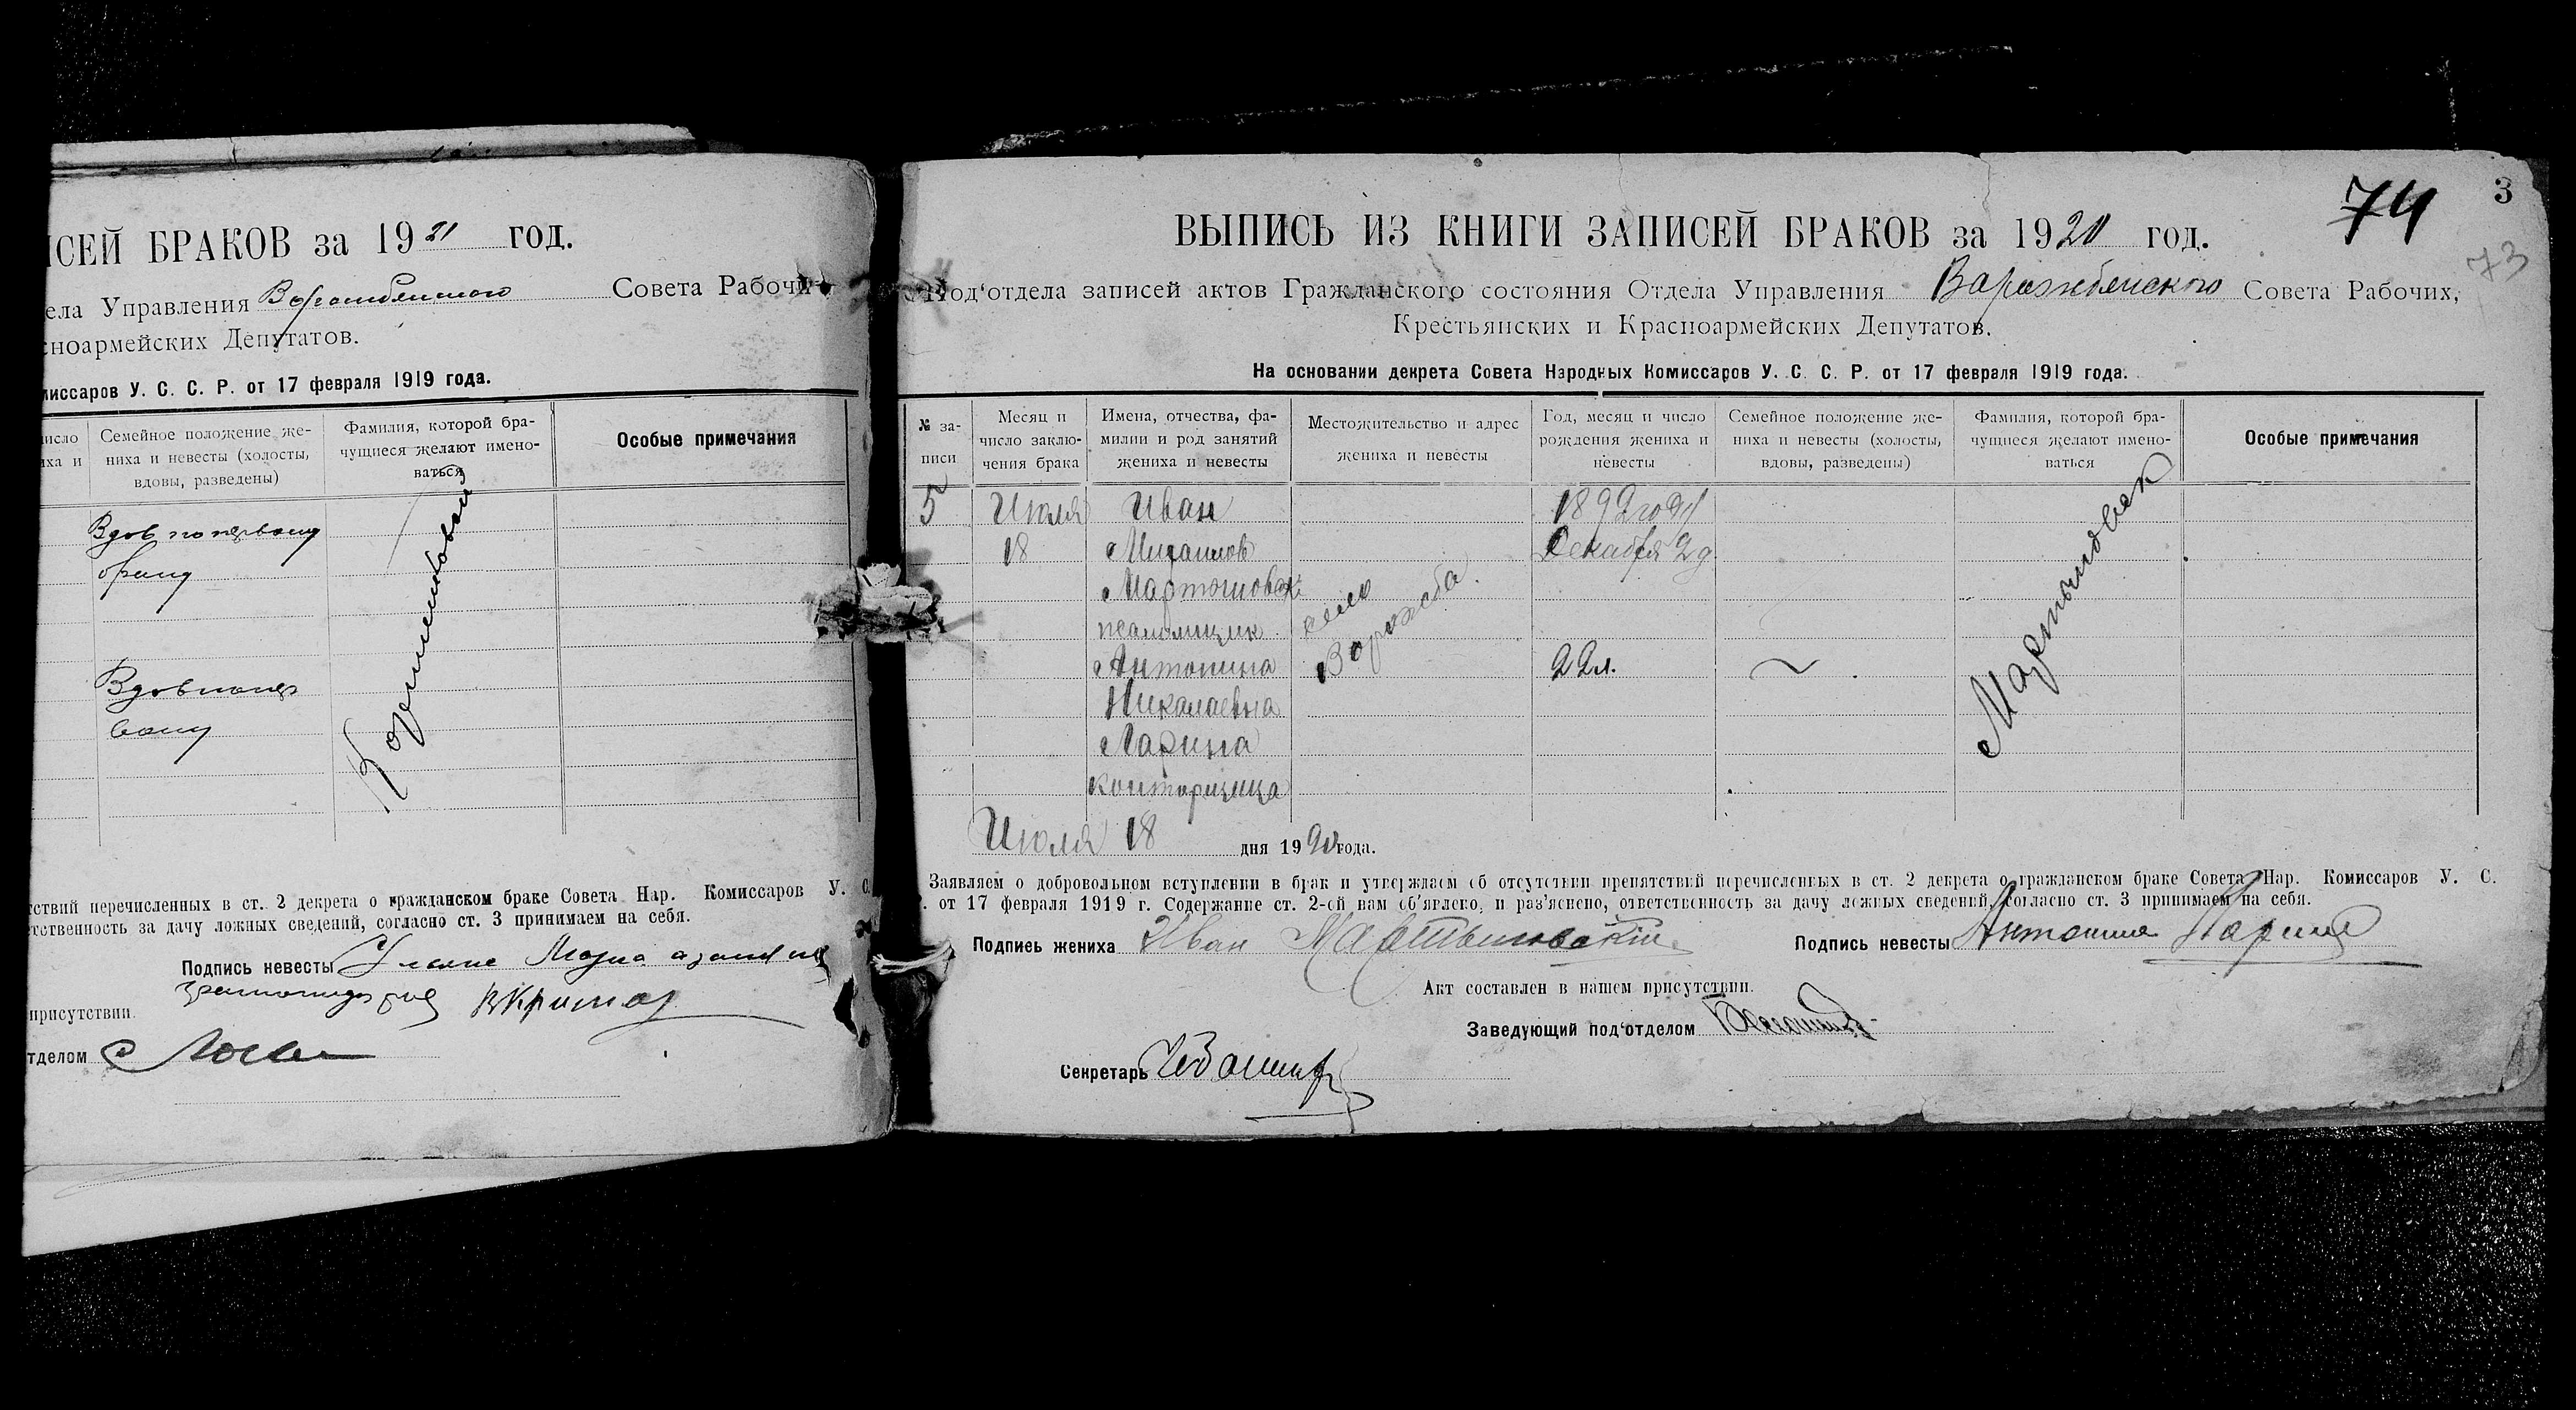 ИСЕЙ БРАКОВ за 1921 год.
ела Управления Совета Рабочи
сноармейских Депутатов.
миссаров У. С. С. Р. от 17 февраля 1919 года.
число
иха и
Семейное положение же-
ниха и невесты (холосты,
вдовы, разведены)
Фамилия, которой бра-
чущиеся желают имено-
ваться
Особые примечания
Вдов по первому
браку
Вдов по пер
вому
тствий перечисленных в ст. 2 декрета о гражданском браке Совета Нар. Комиссаров У. С.
тственность за дачу ложных сведений, согласно ст. 3 принимаем на себя.
Подпись невесты
присутствии.
тделом
74
3
73
ВЫПИСЬ ИЗ КНИГИ ЗАПИСЕЙ БРАКОВ за 1920 год.
Под‘отдела записей актов Гражданского состояния Отдела Управления Варожбянского Совета Рабочих,
Крестьянских и Красноармейских Депутатов.
На основании декрета Совета Народных Комиссаров У. С. С. Р. от 17 февраля 1919 года.
№ за-
писи
Месяц и
число заклю-
чения брака
Имена, отчества, фа-
милии и род занятий
жениха и невесты
Местожительство и адрес
жениха и невесты
Год, месяц и число
рождения жениха и
невесты
Семейное положение же-
ниха и невесты (холосты,
вдовы, разведены)
Фамилия, которой бра-
чущиеся желают имено-
ваться
Особые примечания
5 Июля Иван 1892 году
18 Михаилов Декабря 29
Мартыновск
псаломщик
село
Ворожба.
Антонина 22 л.
Николаевна
Ларина
конторщица
Мартыновск
Июля 18 дня 1920 года.
Заявляем о добровольном вступлении в брак и утверждаем об отсутствии препятствий перечисленных в ст. 2 декрета о гражданском браке Совета Нар. Комиссаров У. С.
Р. от 17 февраля 1919 г. Содержание ст. 2-ой нам об‘явлено, и раз‘яснено, ответственность за дачу ложных сведений, согласно ст. 3 принимаем на себя.
Подпись жениха Иван Мартыновский Подпись невесты Антонина Ларина
Акт составлен в нашем присутствии.
Заведующий под‘отделом
Секретарь